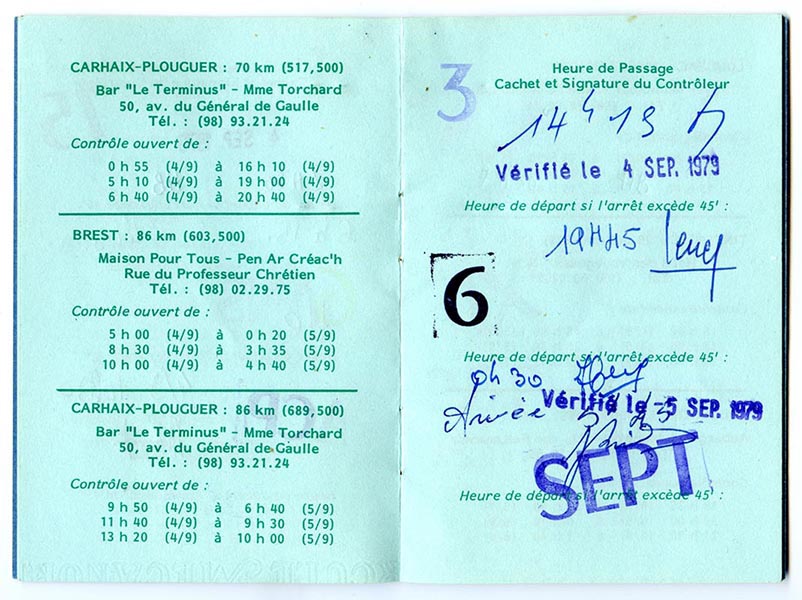 CARHAIX-PLOUGUER : 70 km (517,500)
Bar "Le Terminus" - Mme Torchard
50, av. du Général de Gaulle
Tél. : (98) 93.21.24
Contrôle ouvert de :
0 h 55 (4/9) à 16 h 10 (4/9)
5 h 10 (4/9) à 19 h 00 (4/9)
6 h 40 (4/9) à 20 h 40 (4/9)
BREST : 86 km (603,500)
Maison Pour Tous - Pen Ar Créac'h
Rue du Professeur Chrétien
Tél. : (98) 02.29.75
Contrôle ouvert de :
5 h 00 (4/9) à 0 h 20 (5/9)
8 h 30 (4/9) à 3 h 35 (5/9)
10 h 00 (4/9) à 4 h 40 (5/9)
CARHAIX-PLOUGUER : 86 km (689,500)
Bar "Le Terminus" - Mme Torchard
50, av. du Général de Gaulle
Tél. : (98) 93.21.24
Contrôle ouvert de :
9 h 50 (4/9) à 6 h 40 (5/9)
11 h 40 (4/9) à 9 h 30 (5/9)
13 h 20 (4/9) à 10 h 00 (5/9)
3
Heure de Passage
Cachet et Signature du Contrôleur
14 h 19
Vérifié le 4 SEP. 1979
Heure de départ si l'arrêt excède 45' :
19H45
6
Heure de départ si l'arrêt excède 45' :
0h30
Vérifié le -5 SEP. 1979
Arrivée
SEPT
Heure de départ si l'arrêt excède 45' :